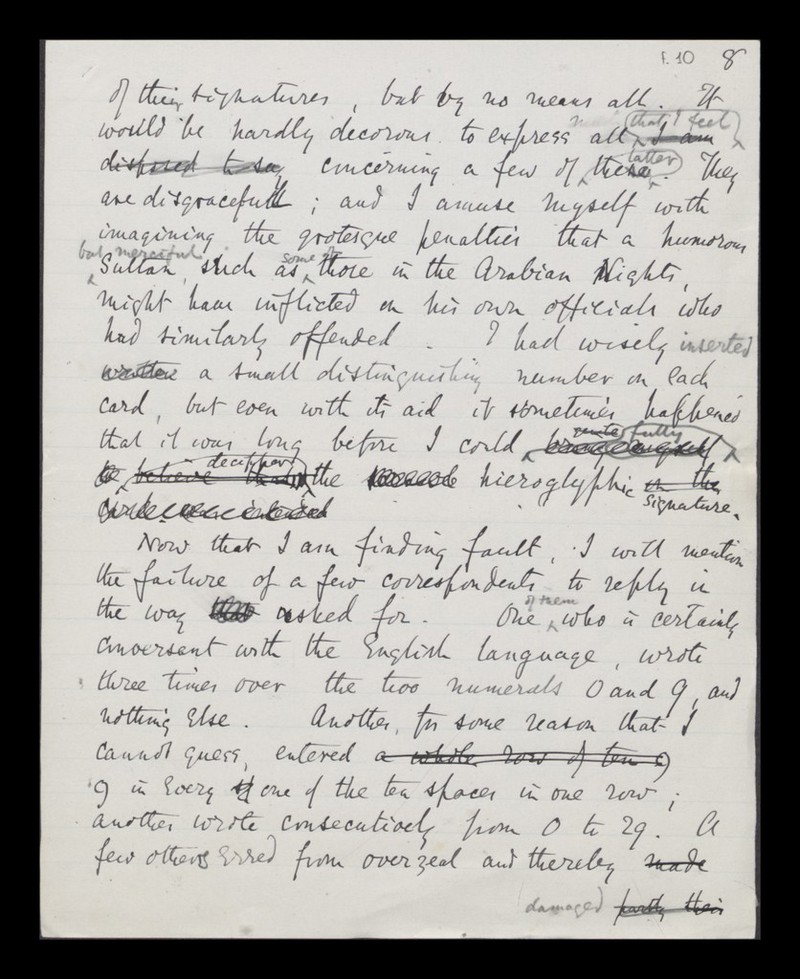 f.10 8
of their signatures, but by no means all. It
would be hardly decorous to express all that I feel I am
disposed to say concerning a few of these latter. They
are disgracefull; and I amuse myself with
imagining the grotesque penalties that a humorous
but merciful Sultan, such as some of those in the Arabian Nights,
might have inflicted on his own officials who
had similarly offended. I had wisely inserted
written a small distinguishing number on each
card, but even with its aid it sometimes happened
that it was long before I could quite fully
to believe them decipher the hieroglyphic on the
signature.
Now that I am finding fault, I will mention
the failure of a few correspondents to reply in
the way that asked for. One of them who is certainly
conversent with the English language, wrote
three times over the two numerals 0 and 9, and
nothing else. Another, for some reason that I
cannot guess, entered a whole row of ten 9
9 in every one of the ten spaces in one row;
another wrote consecutively from 0 to 29. A
few others erred from overzeal and thereby made
damaged partly their